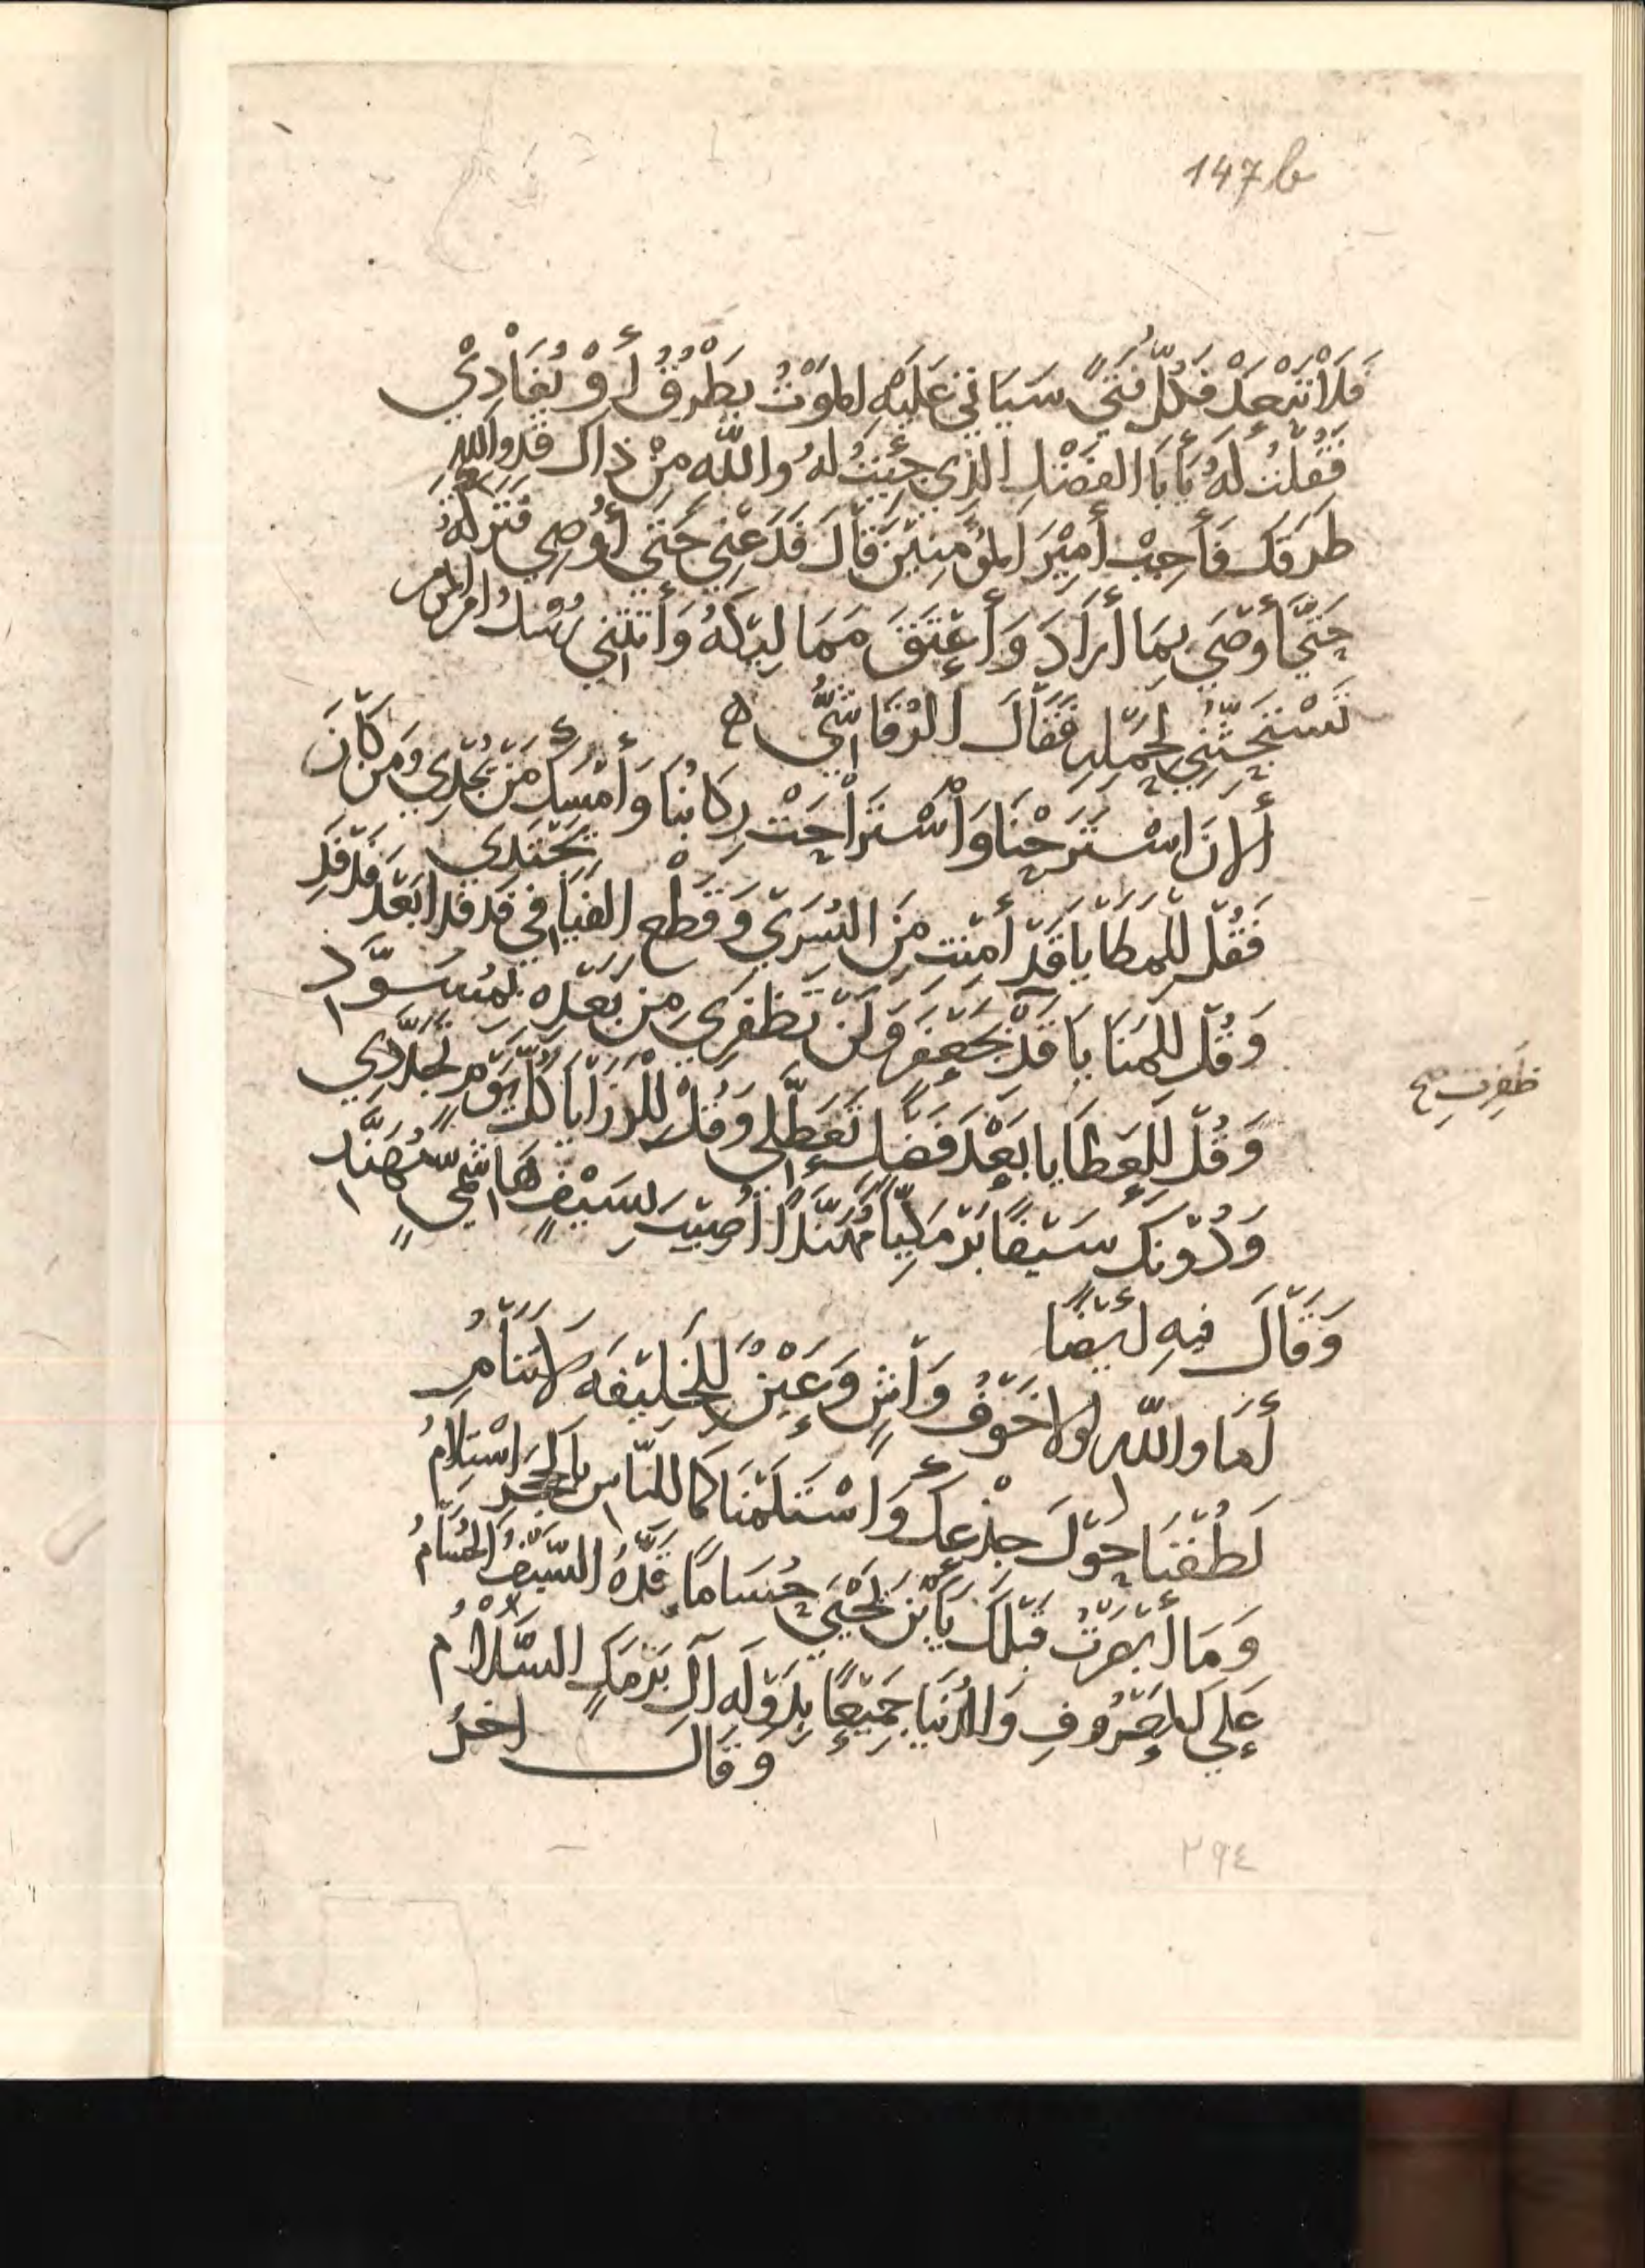 147b
فَلَا تَبْعَدْ فَكُلُّ فَتًى سَيَأتي عَلَيْهِ المَوْتُ يَطْرُقُ أَوْ يُغَادِيْ
فَقُلْتُ لَهُ يَأبَا الفَضْلِ الَّذِي جِئْتُ لهُ واللّه مِنْ ذاكَ قَدْ واللهِ
طَرَقَكَ فَأَجِبْ أَمِيْرَ المُؤْمِنِيْنَ قَالَ فَدَعْنِي حَتَّى أُوْصِي فَتَركْتُهُ
حَتَّى أَوْصَى بِمَا أَرَادَ وَأَعْتَقَ مَمَالِيْكَهُ وَأَتَتْنِي رُسُلُ امير المؤمنين
تَسْتَحِثُّنِي لِحَمْلِهِ فَقَالَ الرَّقَاشِيُّ ه
أَلانَ اسْتَرَحْنَا وَاسْتَرَاحَتْ رِكَابُنَا وَأَمْسَكَ مَنْ يُجْدِي وَمَن كَانَ
يَجْتَدِي
فَقُلْ لِلْمَطَايَا قَدْ أَمِنْتِ مِنَ السُّرَى وَقَطْعِ الفَيَافي فَدْفَدًا بَعْدَ فَدْفَدِ
وَقُلْ لِلْمَنَايَا قَدْ بِجَعْفَرَ وَلَنْ تَظْفَرِي مِنْ بَعْدِهِ بِمُسَوَّدِ
ظَفِرْتِ صح
وَقُلْ لِلْعَطَايَا بَعْدَ فَضْلٍ تَعَطَّلِي وَقُلْ لِلرَّزَايَا كُلَّ يَوْمٍ تَجَدَّدِي
وَدُوْنَكَ سَيْفًا بَرْمَكِيًّا مُهَنَّدًا أُصِيْبَ بِسَيْفٍ هَاشِمِيٍّ مُهَنَّدِ
وَقَالَ فِيهِ أَيْضًا
أَمَا واللّهِ لَولا خَوْفُ وَاشٍ وَعَيْنٌ لِلْخَلِيْفَهِ لَا تَنَامُ
لَطُفْنَا حَوْلَ جِذْعِكَ وَاسْتَلَمْنَا كَمَا لِلنَّاسِ بِالحَجَرِ اسْتِلَامُ
وَمَا أَبْصَرْتُ قَبْلَكَ يَأبْنَ يَحْيَى حُسَامًا قَدَّهُ السَّيْفُ الحُسَامُ
عَلَى المَعْرُوفِ وَالدُّنْيَا جَمِيْعًا بِدَوْلَهِ آلِ بَرْمَكٍ السَّلَامُ
وَقَالَ اخَرُ
٢٩٤